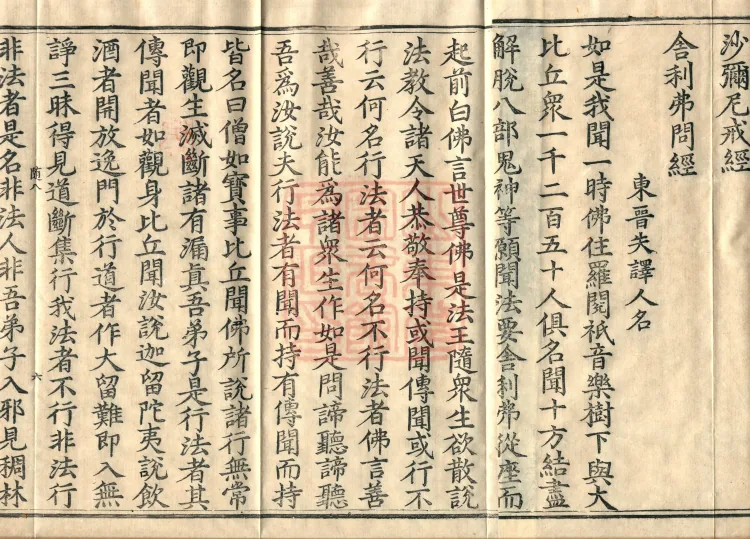 沙彌尼戒經
舍利弗問經
東晉失譯人名
如是我聞一時佛住羅閱祇音樂樹下與大
比丘衆一千二百五十人俱名聞十方結盡
解脫八部鬼神等願聞法要舍利弗從座而
起前白佛言世尊佛是法王隨衆生欲散說
法教令諸天人恭敬奉持或聞傳聞或行不
行云何名行法者云何名不行法者佛言善
哉善哉汝能為諸衆生作如是問諦聽諦聽
吾為汝說夫行法者有聞而持有傳聞而持
皆名曰僧如寶事比丘聞佛所說諸行無常
即觀生滅斷諸有漏真吾弟子是行法者其
傳聞者如觀身比丘聞汝說迦留陀夷說飲
酒者開放逸門於行道者作大留難即入無
諍三昧得見道斷集行我法者不行非法行
六
非法者是名非法人非吾弟子入邪見稠林